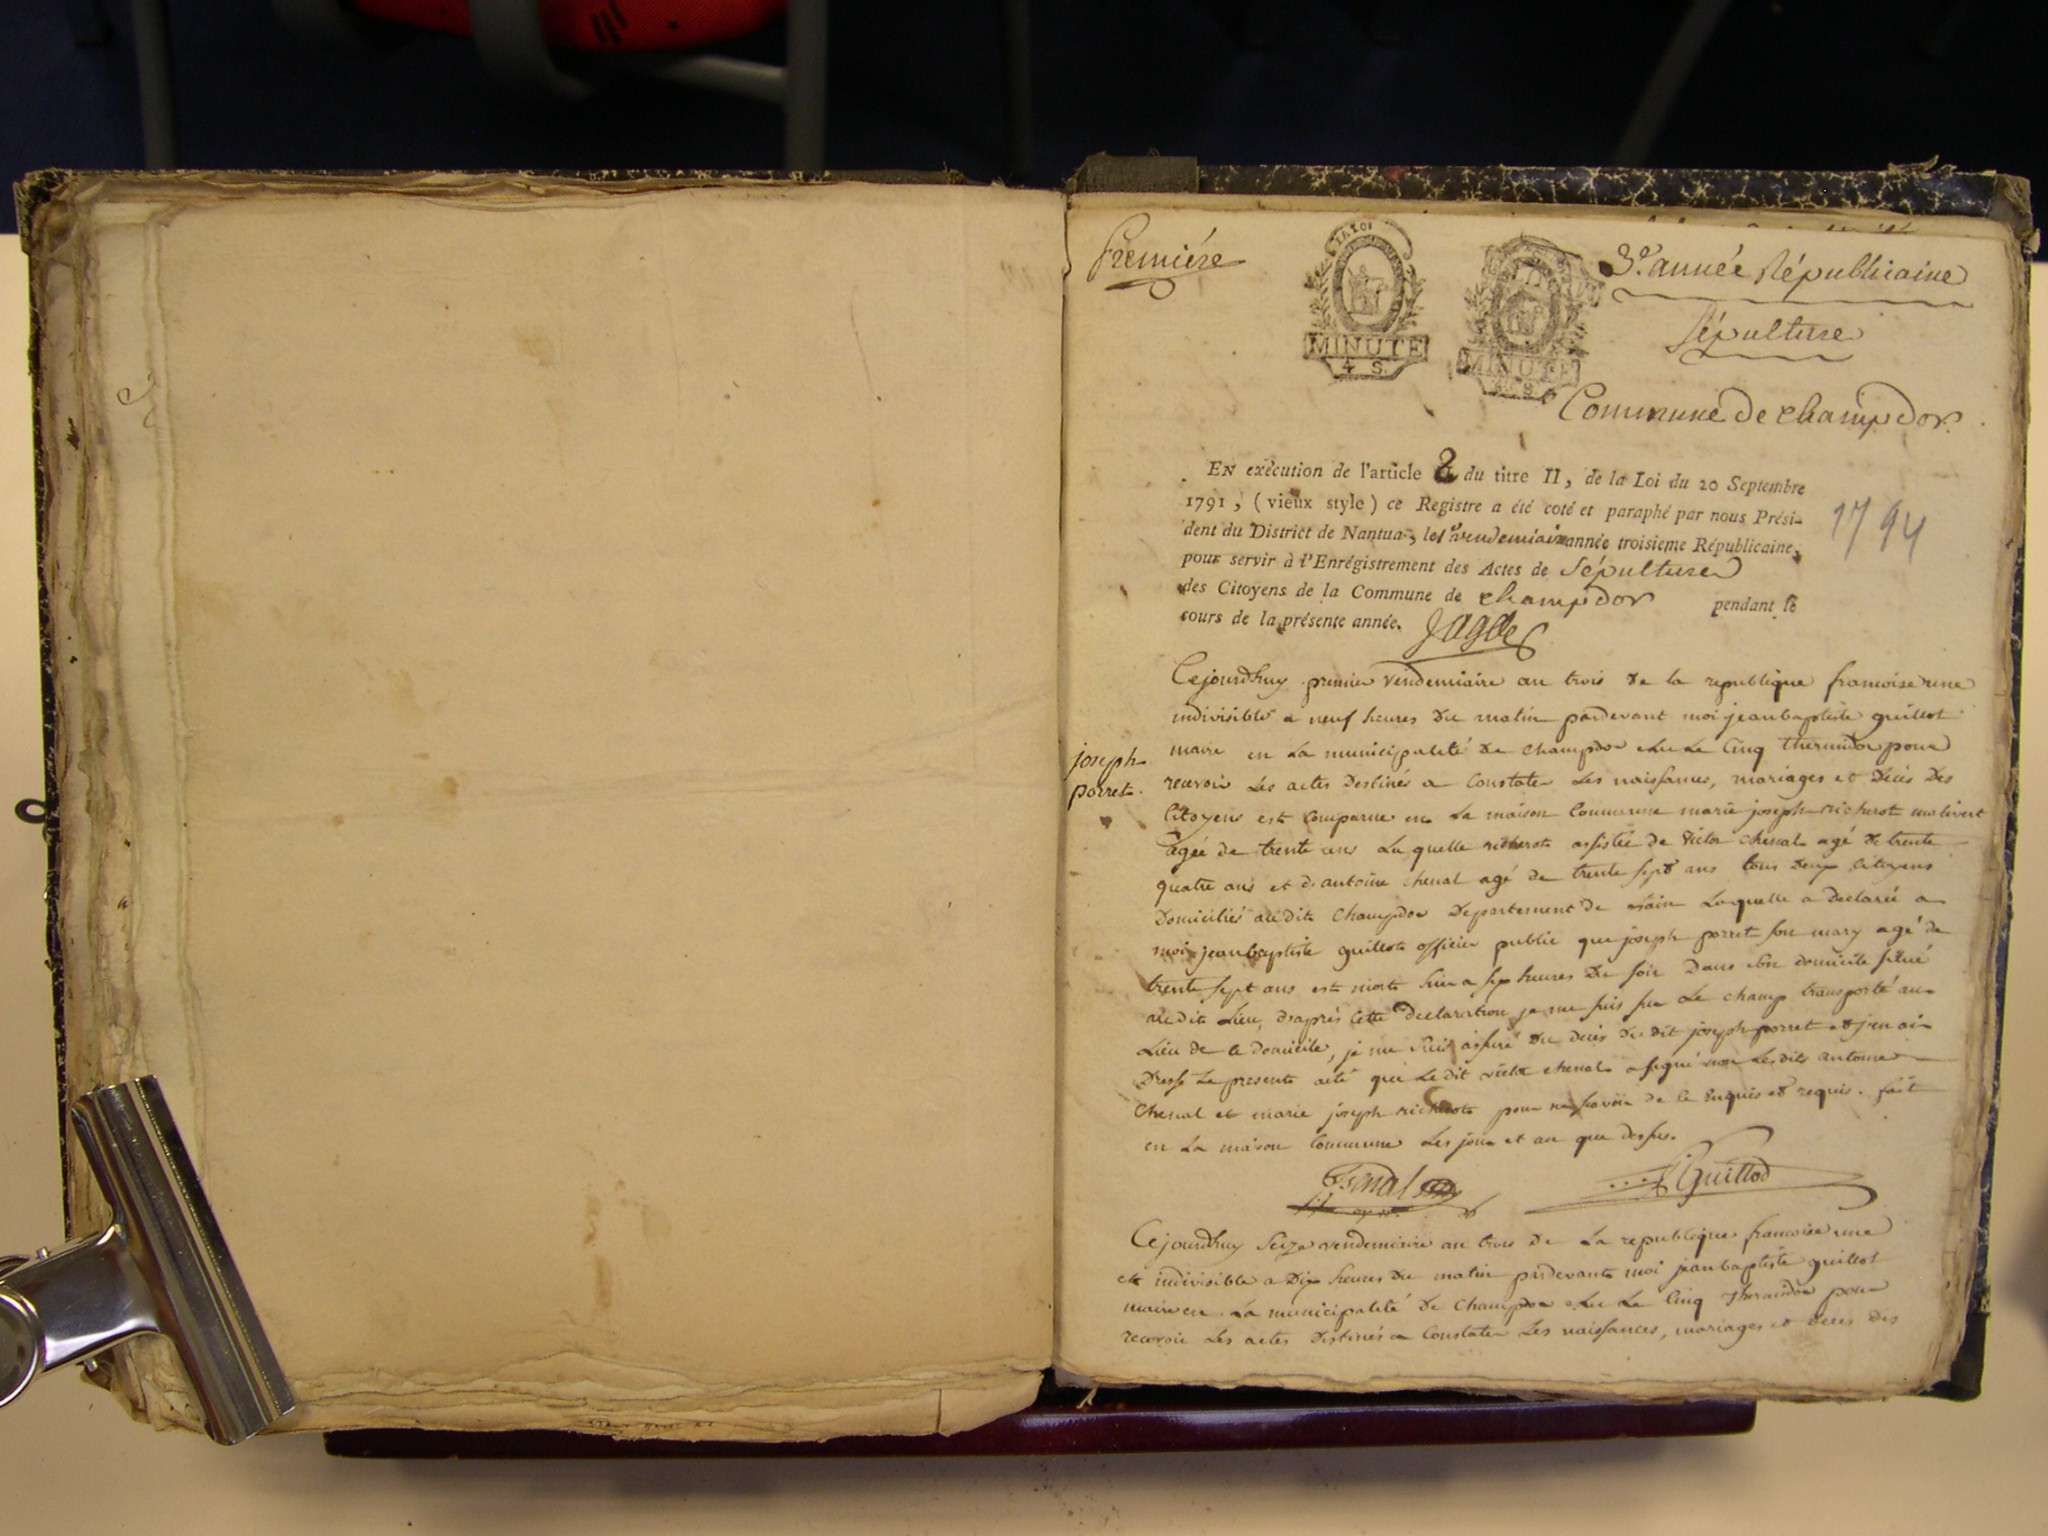 Première
LA LOI
MINUTE
4 S.
MINUTE
4 S.
3e. année Républicaine
Sépulture
Commune de champdor.
EN exécution de l'article 2 du titre II, de la Loi du 20 Septembre
1791, (vieux style) ce Registre a été coté et paraphé par nous Prési-
dent du District de Nantua, le 1er vendemiaire année troisieme Républicaine,
pour servir à l'Enrégistrement des Actes de Sépulture
des Citoyens de la Commune de champdor pendant le
cours de la présente année. Jagot
1794
joseph
porret.
Cejourdhuy premier vendemiaire an trois de la republique francoise une
indivisible a neuf heures du matin pardevant moi jean baptiste guillot
maire en la municipalité de champdor elu le cinq thermidor pour
recevoir les actes destinés a constater les naissances, mariages et décès des
citoyens est comparue en la maison commune marie joseph richerot
agée de trente ans la quelle richerot assistée de victor chenal agé de trente
quatre ans et d antoine chenal agé de trente sept ans tous deux citoyens
domiciliés audit champdor departement de lain laquelle a declaré a
moi jeanbaptiste guillot officier public que joseph porret son mary agé de
trente sept ans est mort hier a six heures du soir dans son domicile situé
audit lieu, d'après cette declaration je me suis sur le champ transporté au
lieu de ce domicile, je me suis assuré du décès dudit joseph porret et j'en ai
dressé le present acte que ledit victor chenal a signé non lesdits antoine
chenal et marie joseph richerot pour ne savoir de ce enquis et requis. fait
en la maison commune les jour et an que dessus.
Chenal
Guillot
Cejourdhuy seize vendemiaire an trois de la republique francoise une
et indivisible a dix heures du matin pardevant moi jean baptiste guillot
maire en la municipalité de champdor elu le cinq thermidor pour
recevoir les actes destinés a constater les naissances, mariages et deces des